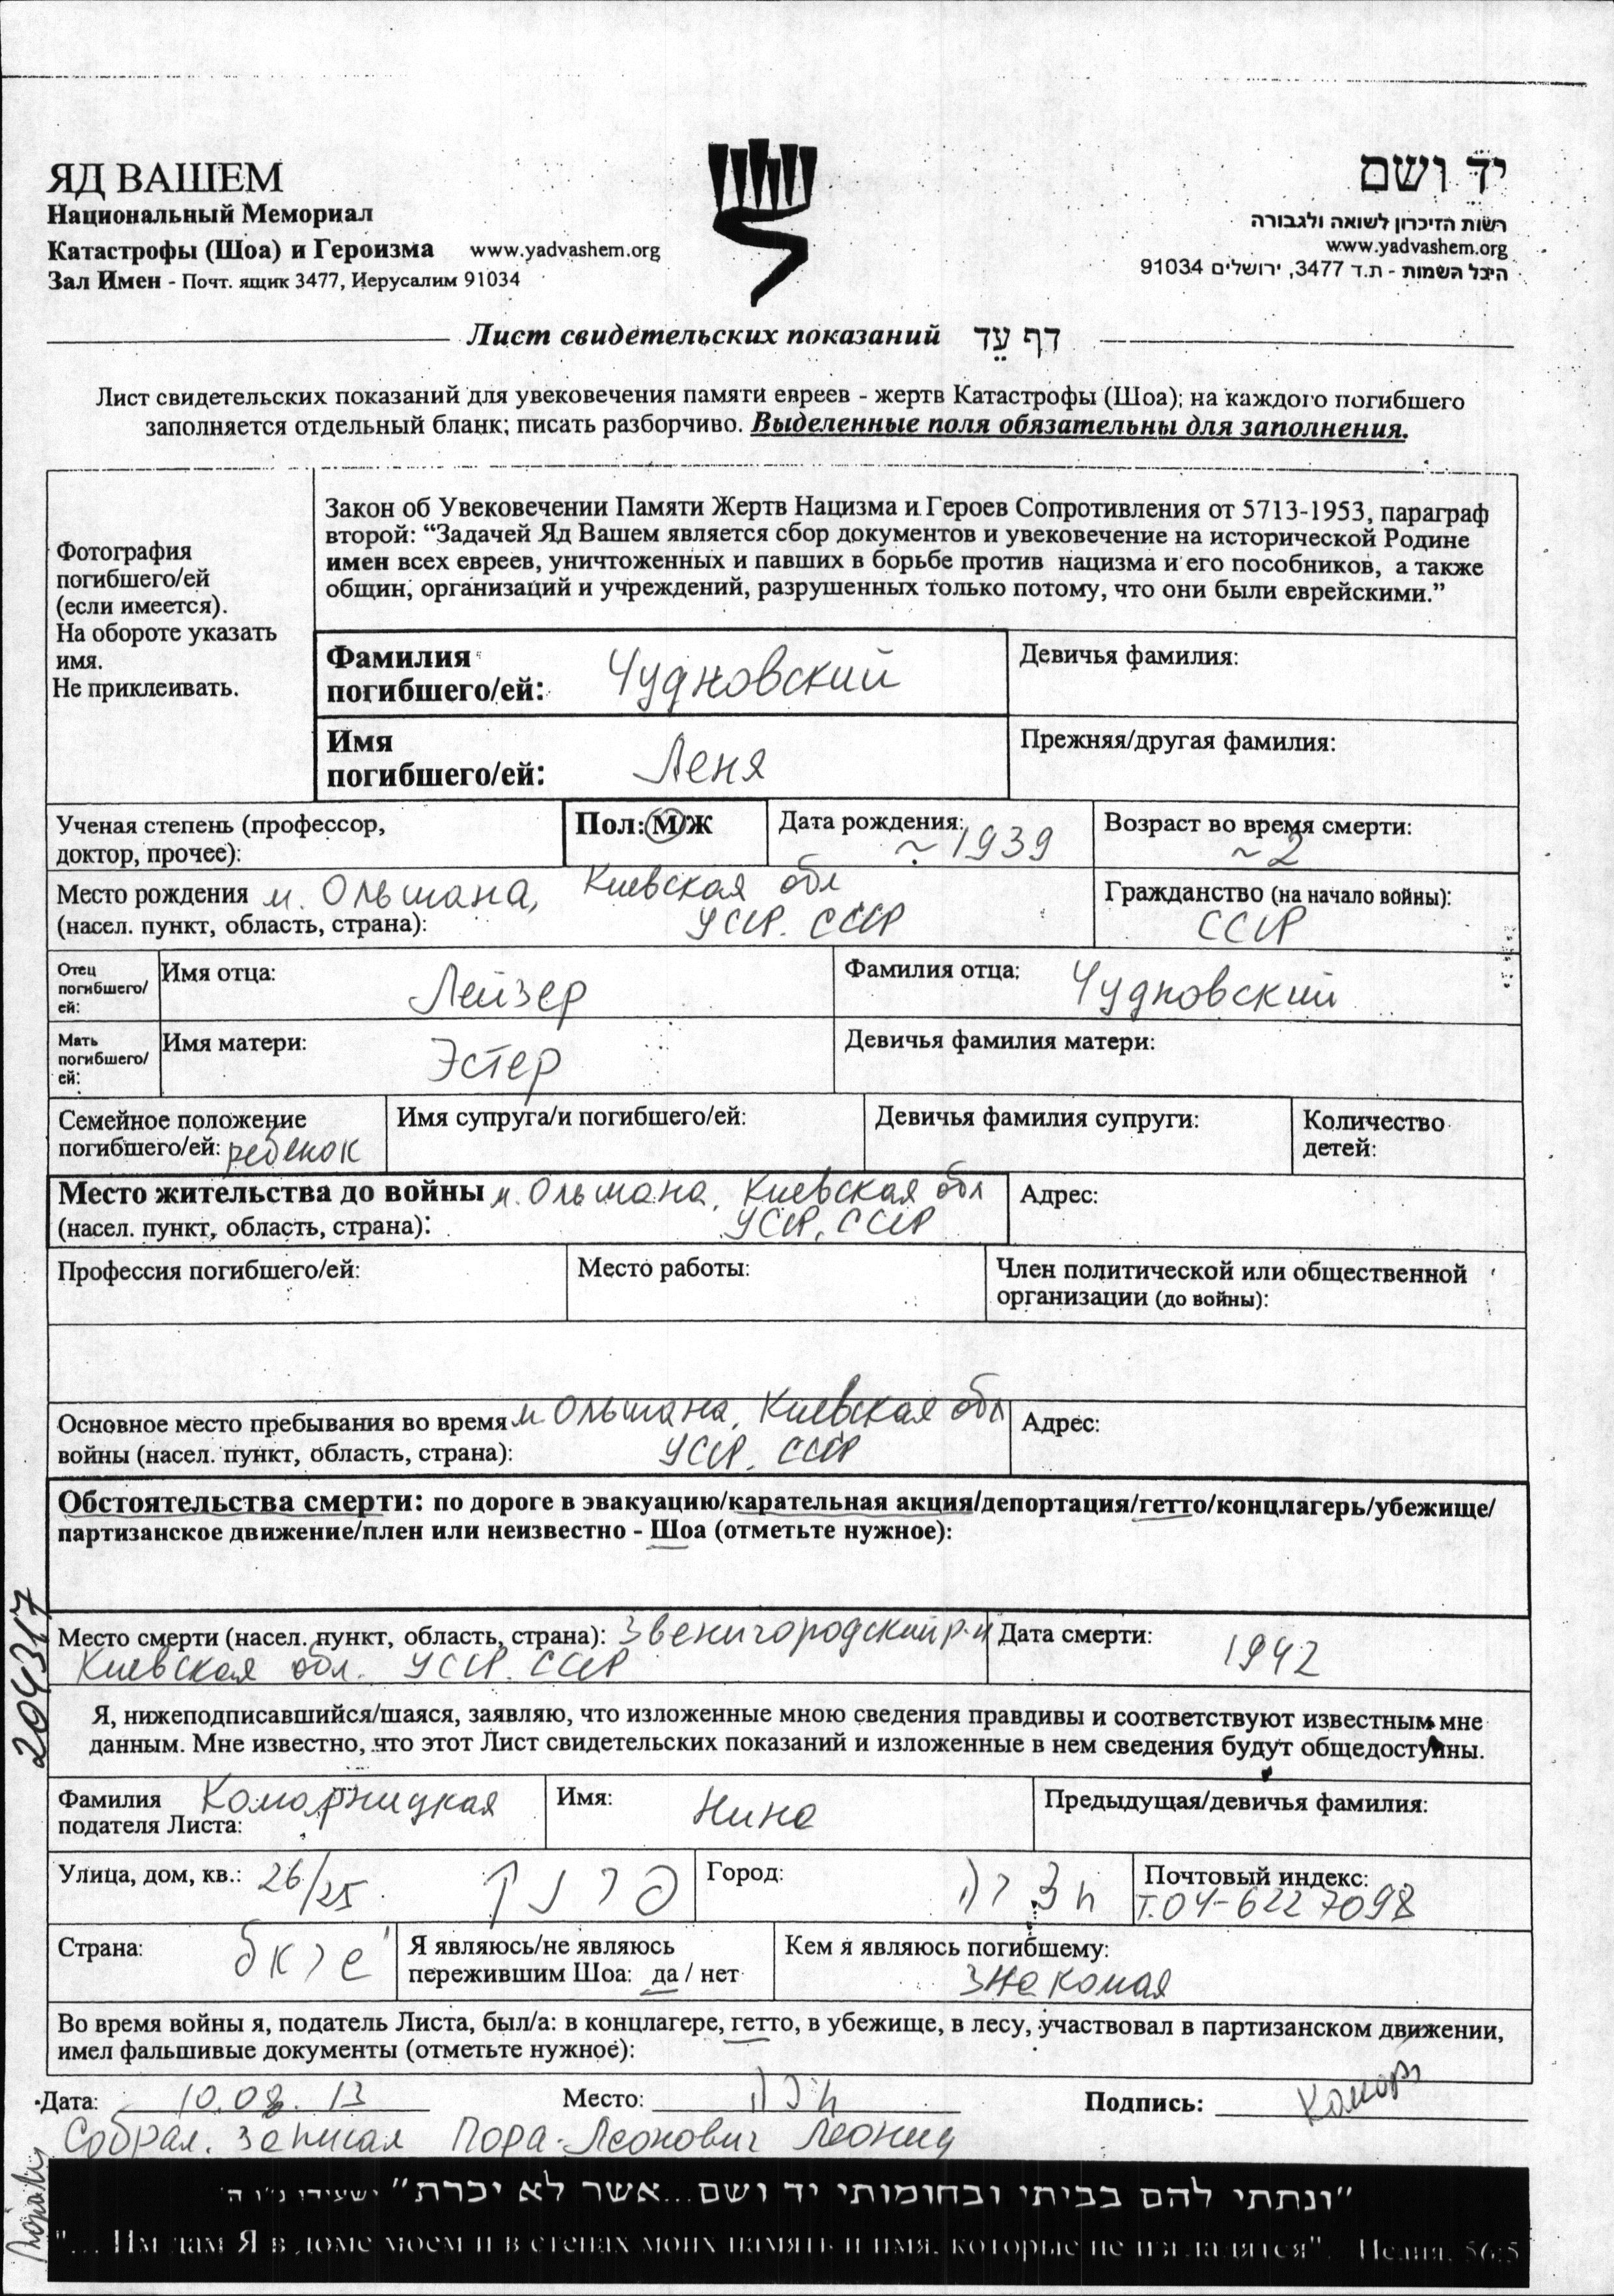 ЯД ВАШЕМ
Национальный Мемориал
Катастрофы (Шоа) и Героизма www.yadvashem.org
Зал Имен - Почт. ящик 3477, Иерусалим 91034
יד ושם
רשות הזיכרון לשואה ולגבורה
www.yadvashem.org
היכל השמות - ת.ד 3477, ירושלים 91034
Лист свидетельских показаний דף עֵד
Лист свидетельских показаний для увековечения памяти евреев - жертв Катастрофы (Шоа); на каждого погибшего
заполняется отдельный бланк; писать разборчиво. Выделенные поля обязательны для заполнения.
Фотография
погибшего/ей
(если имеется).
На обороте указать
имя.
Не приклеивать.
Закон об Увековечении Памяти Жертв Нацизма и Героев Сопротивления от 5713-1953, параграф
второй: “Задачей Яд Вашем является сбор документов и увековечение на исторической Родине
имен всех евреев, уничтоженных и павших в борьбе против нацизма и его пособников, а также
общин, организаций и учреждений, разрушенных только потому, что они были еврейскими.”
Фамилия
погибшего/ей: Чудновский
Девичья фамилия:
Имя
погибшего/ей: Леня
Прежняя/другая фамилия:
Ученая степень (профессор,
доктор, прочее):
Пол: М/Ж
Дата рождения:
~ 1939
Возраст во время смерти:
~ 2
Место рождения м. Ольшана, Киевская обл
(насел. пункт, область, страна): УССР. СССР
Гражданство (на начало войны):
СССР
Отец
погибшего/
ей:
Имя отца: Лейзер
Фамилия отца: Чудновский
Мать
погибшего/
ей:
Имя матери: Эстер
Девичья фамилия матери:
Семейное положение
погибшего/ей: ребенок
Имя супруга/и погибшего/ей:
Девичья фамилия супруги:
Количество
детей:
Место жительства до войны м. Ольшана, Киевская обл
(насел. пункт, область, страна): УССР, СССР
Адрес:
Профессия погибшего/ей:
Место работы:
Член политической или общественной
организации (до войны):
Основное место пребывания во время м. Ольшана, Киевская обл
войны (насел. пункт, область, страна): УССР. СССР
Адрес:
Обстоятельства смерти: по дороге в эвакуацию/карательная акция/депортация/гетто/концлагерь/убежище/
партизанское движение/плен или неизвестно - Шоа (отметьте нужное):
Место смерти (насел. пункт, область, страна): Звенигородский р-н
Киевская обл. УССР. СССР
Дата смерти:
1942
204317
Я, нижеподписавшийся/шаяся, заявляю, что изложенные мною сведения правдивы и соответствуют известным мне
данным. Мне известно, что этот Лист свидетельских показаний и изложенные в нем сведения будут общедоступны.
Фамилия
подателя Листа: Комарницкая
Имя: Нина
Предыдущая/девичья фамилия:
Улица, дом, кв.: 26/25
Город:
Почтовый индекс:
т.04-6227098
Страна:
Я являюсь/не являюсь
пережившим Шоа: да / нет
Кем я являюсь погибшему:
знакомая
Во время войны я, податель Листа, был/а: в концлагере, гетто, в убежище, в лесу, участвовал в партизанском движении,
имел фальшивые документы (отметьте нужное):
Дата: 10.08.13 Место: Подпись:
Собрал. записал Пора-Леонович Леонид
״ונתתי להם בביתי ובחומותי יד ושם...אשר לא יכרת״ ישעיהו נ״ו ה׳
"... Им дам Я в доме моем и в стенах моих память и имя, которые не изгладятся". Исаия, 56:5